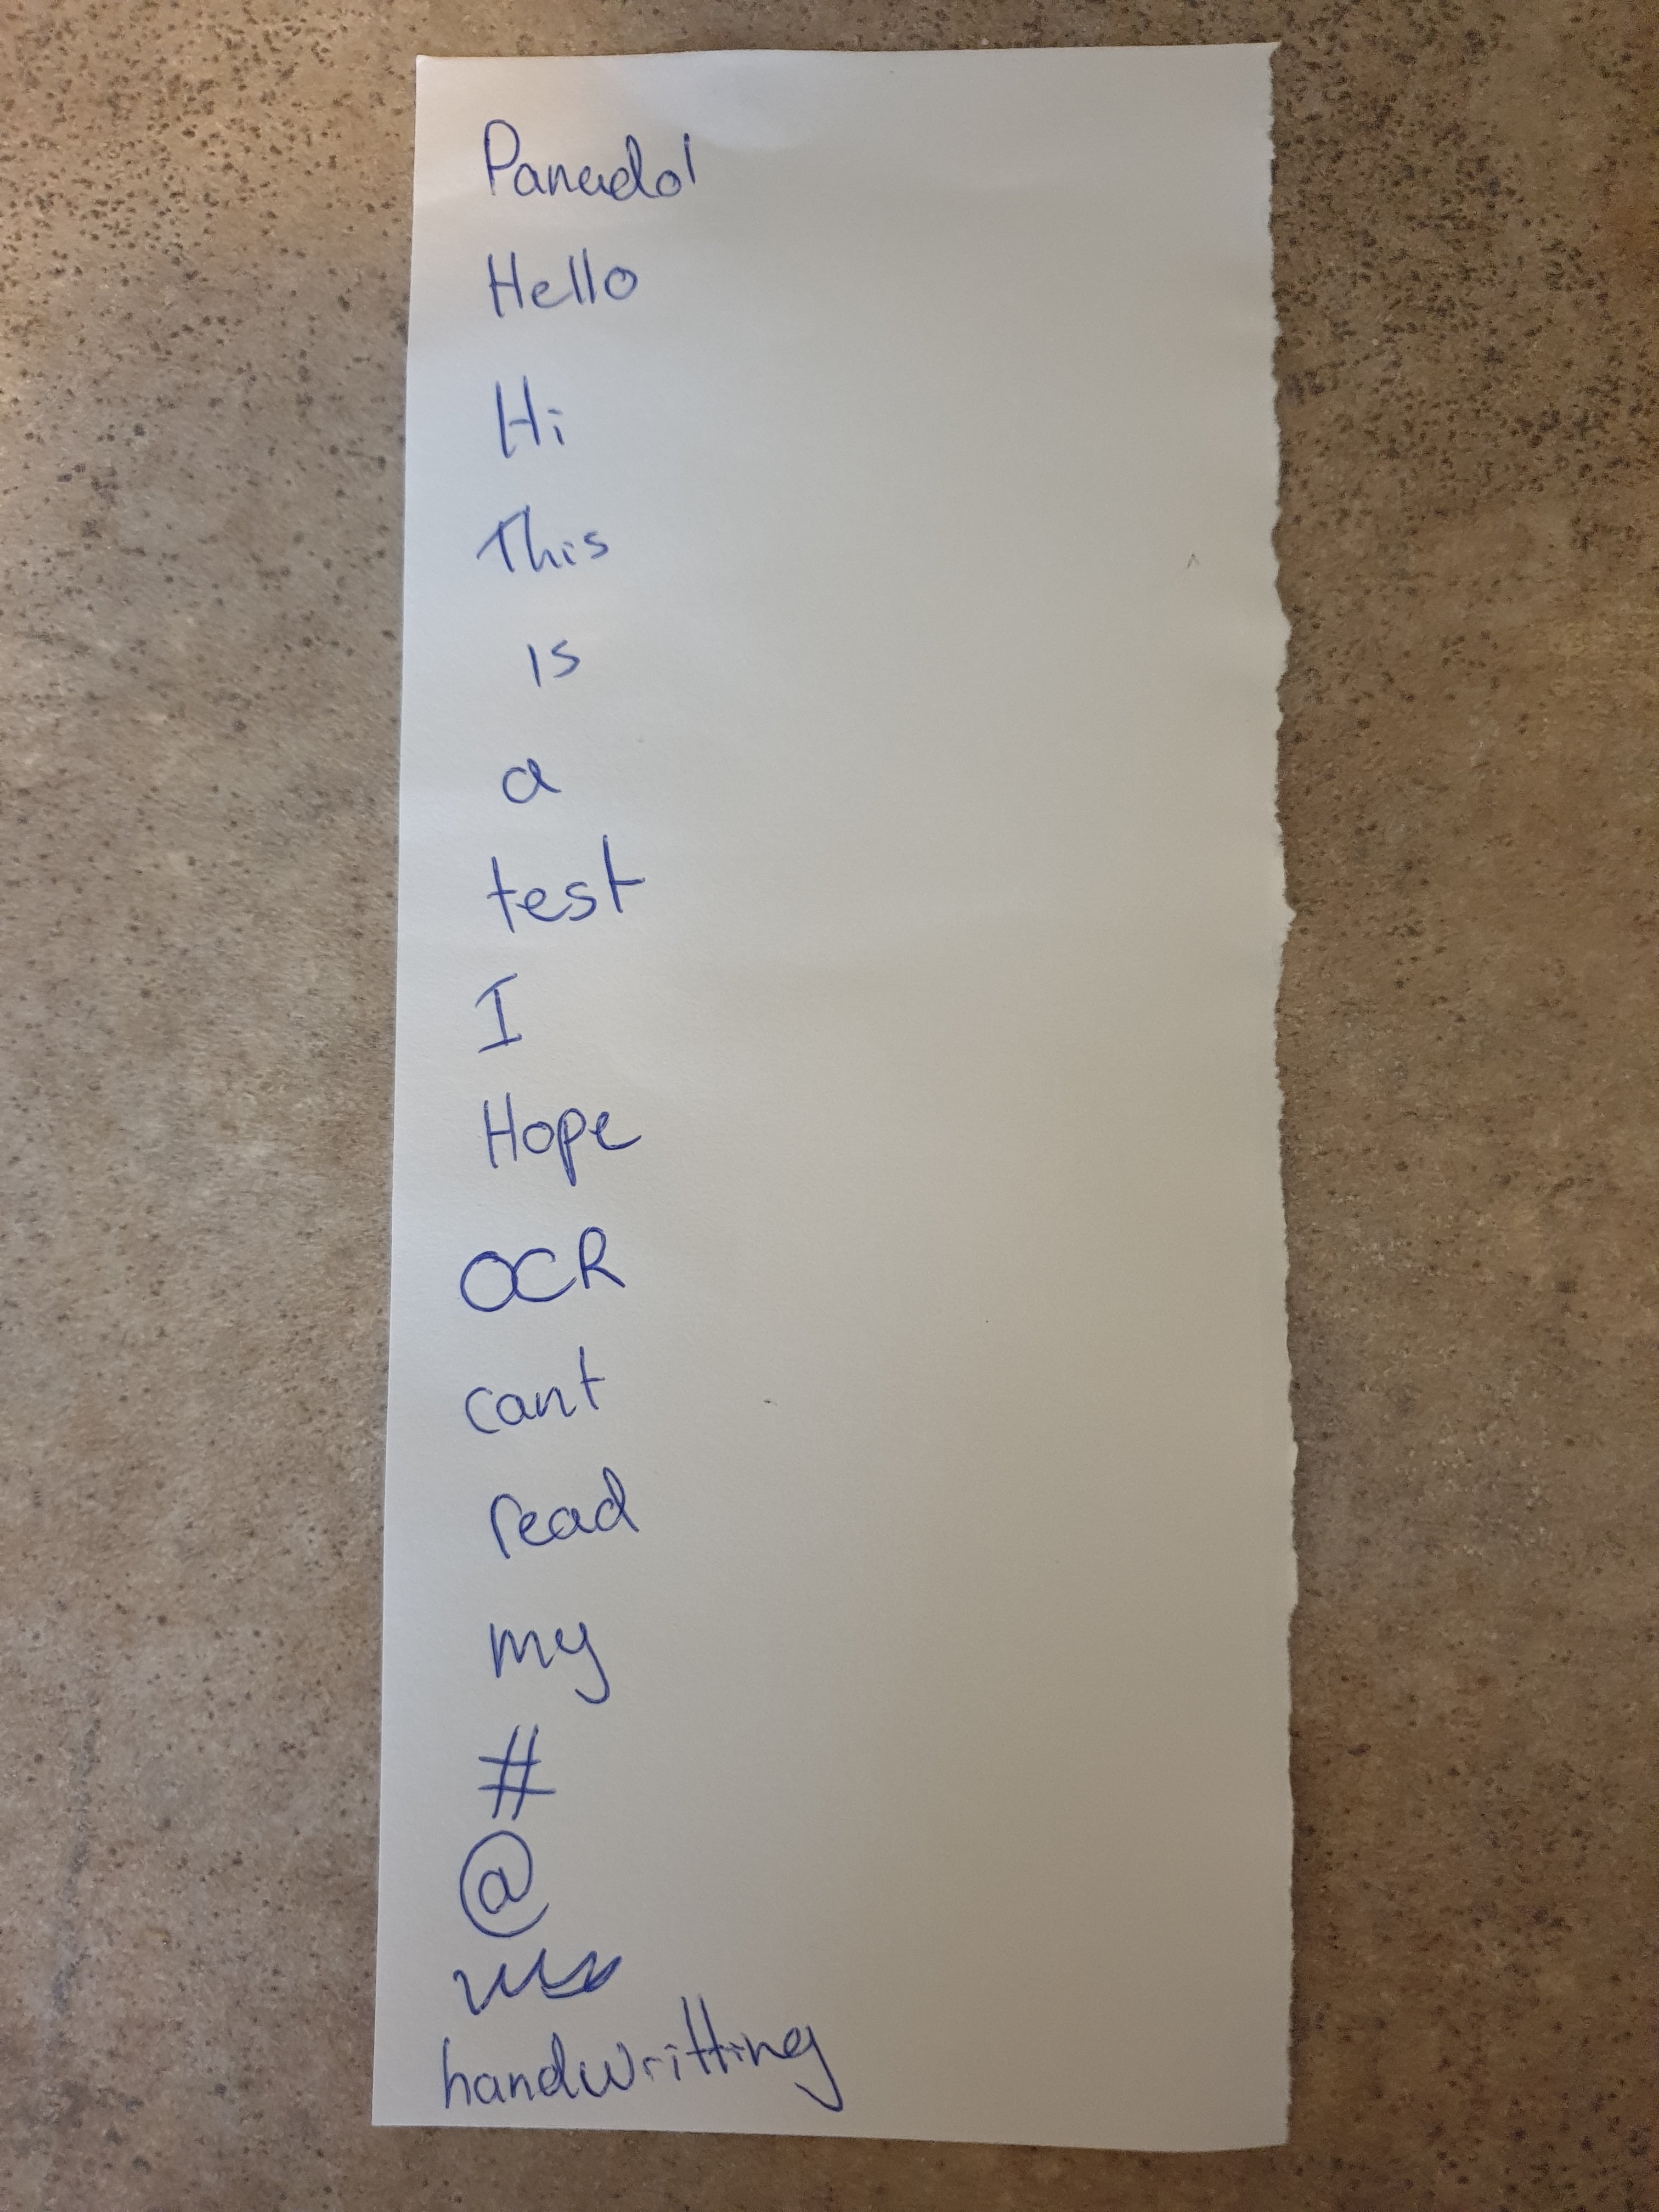 Panadol
Hello
Hi
This
is
a
test
I
Hope
OCR
cant
read
my
#
@
handwritting